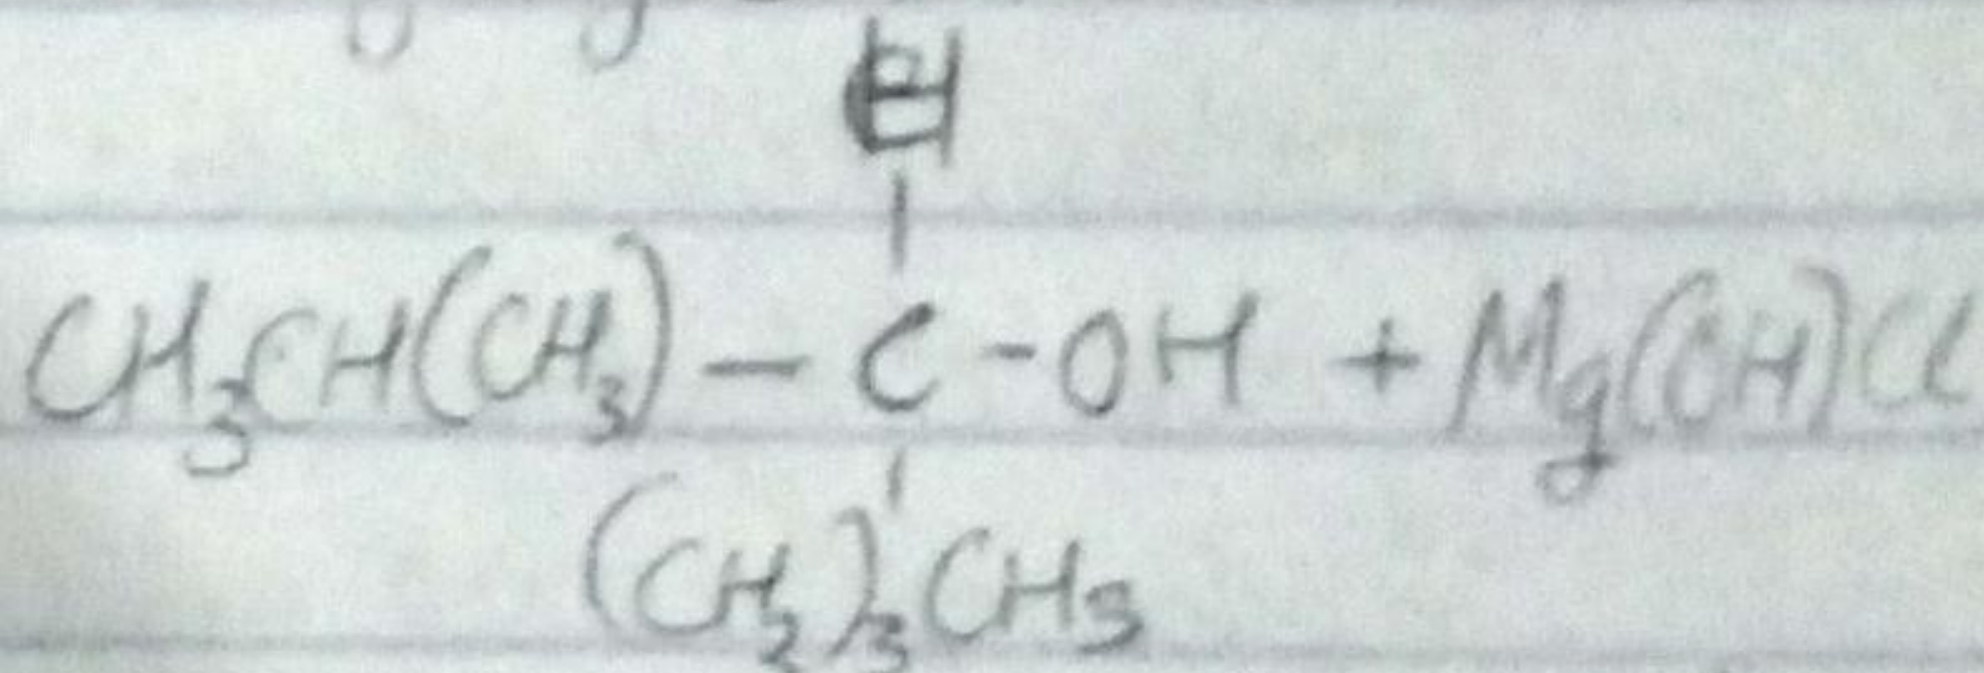 H
|
CH₃CH(CH₃) – C – OH + Mg(OH)Cl
|
(CH₂)₃CH₃